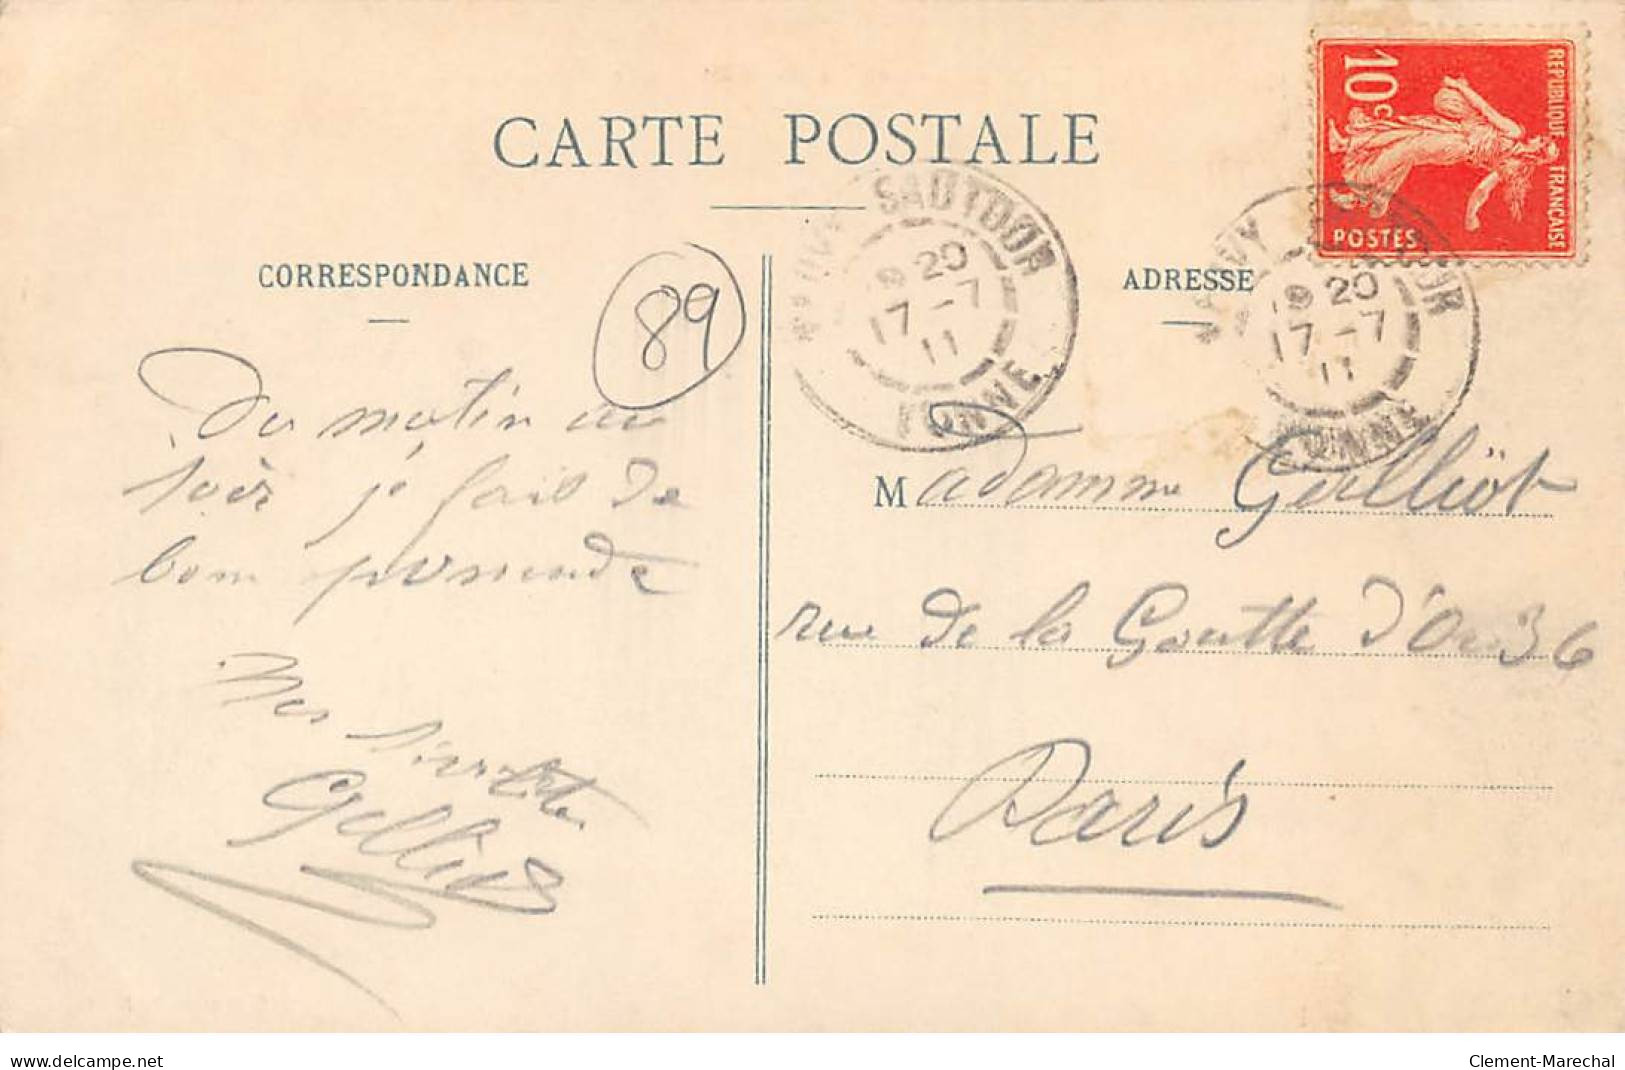 CARTE POSTALE
CORRESPONDANCE
ADRESSE
89
REPUBLIQUE FRANÇAISE
10c
POSTES
NEUVY SAUTOUR
20
17-7
11
YONNE
NEUVY SAUTOUR
20
17-7
11
YONNE
Du matin au
soir je fais de
bon
Madamme
rue de la Goutte d'Or 36
Paris
www.delcampe.net
Clement-Marechal